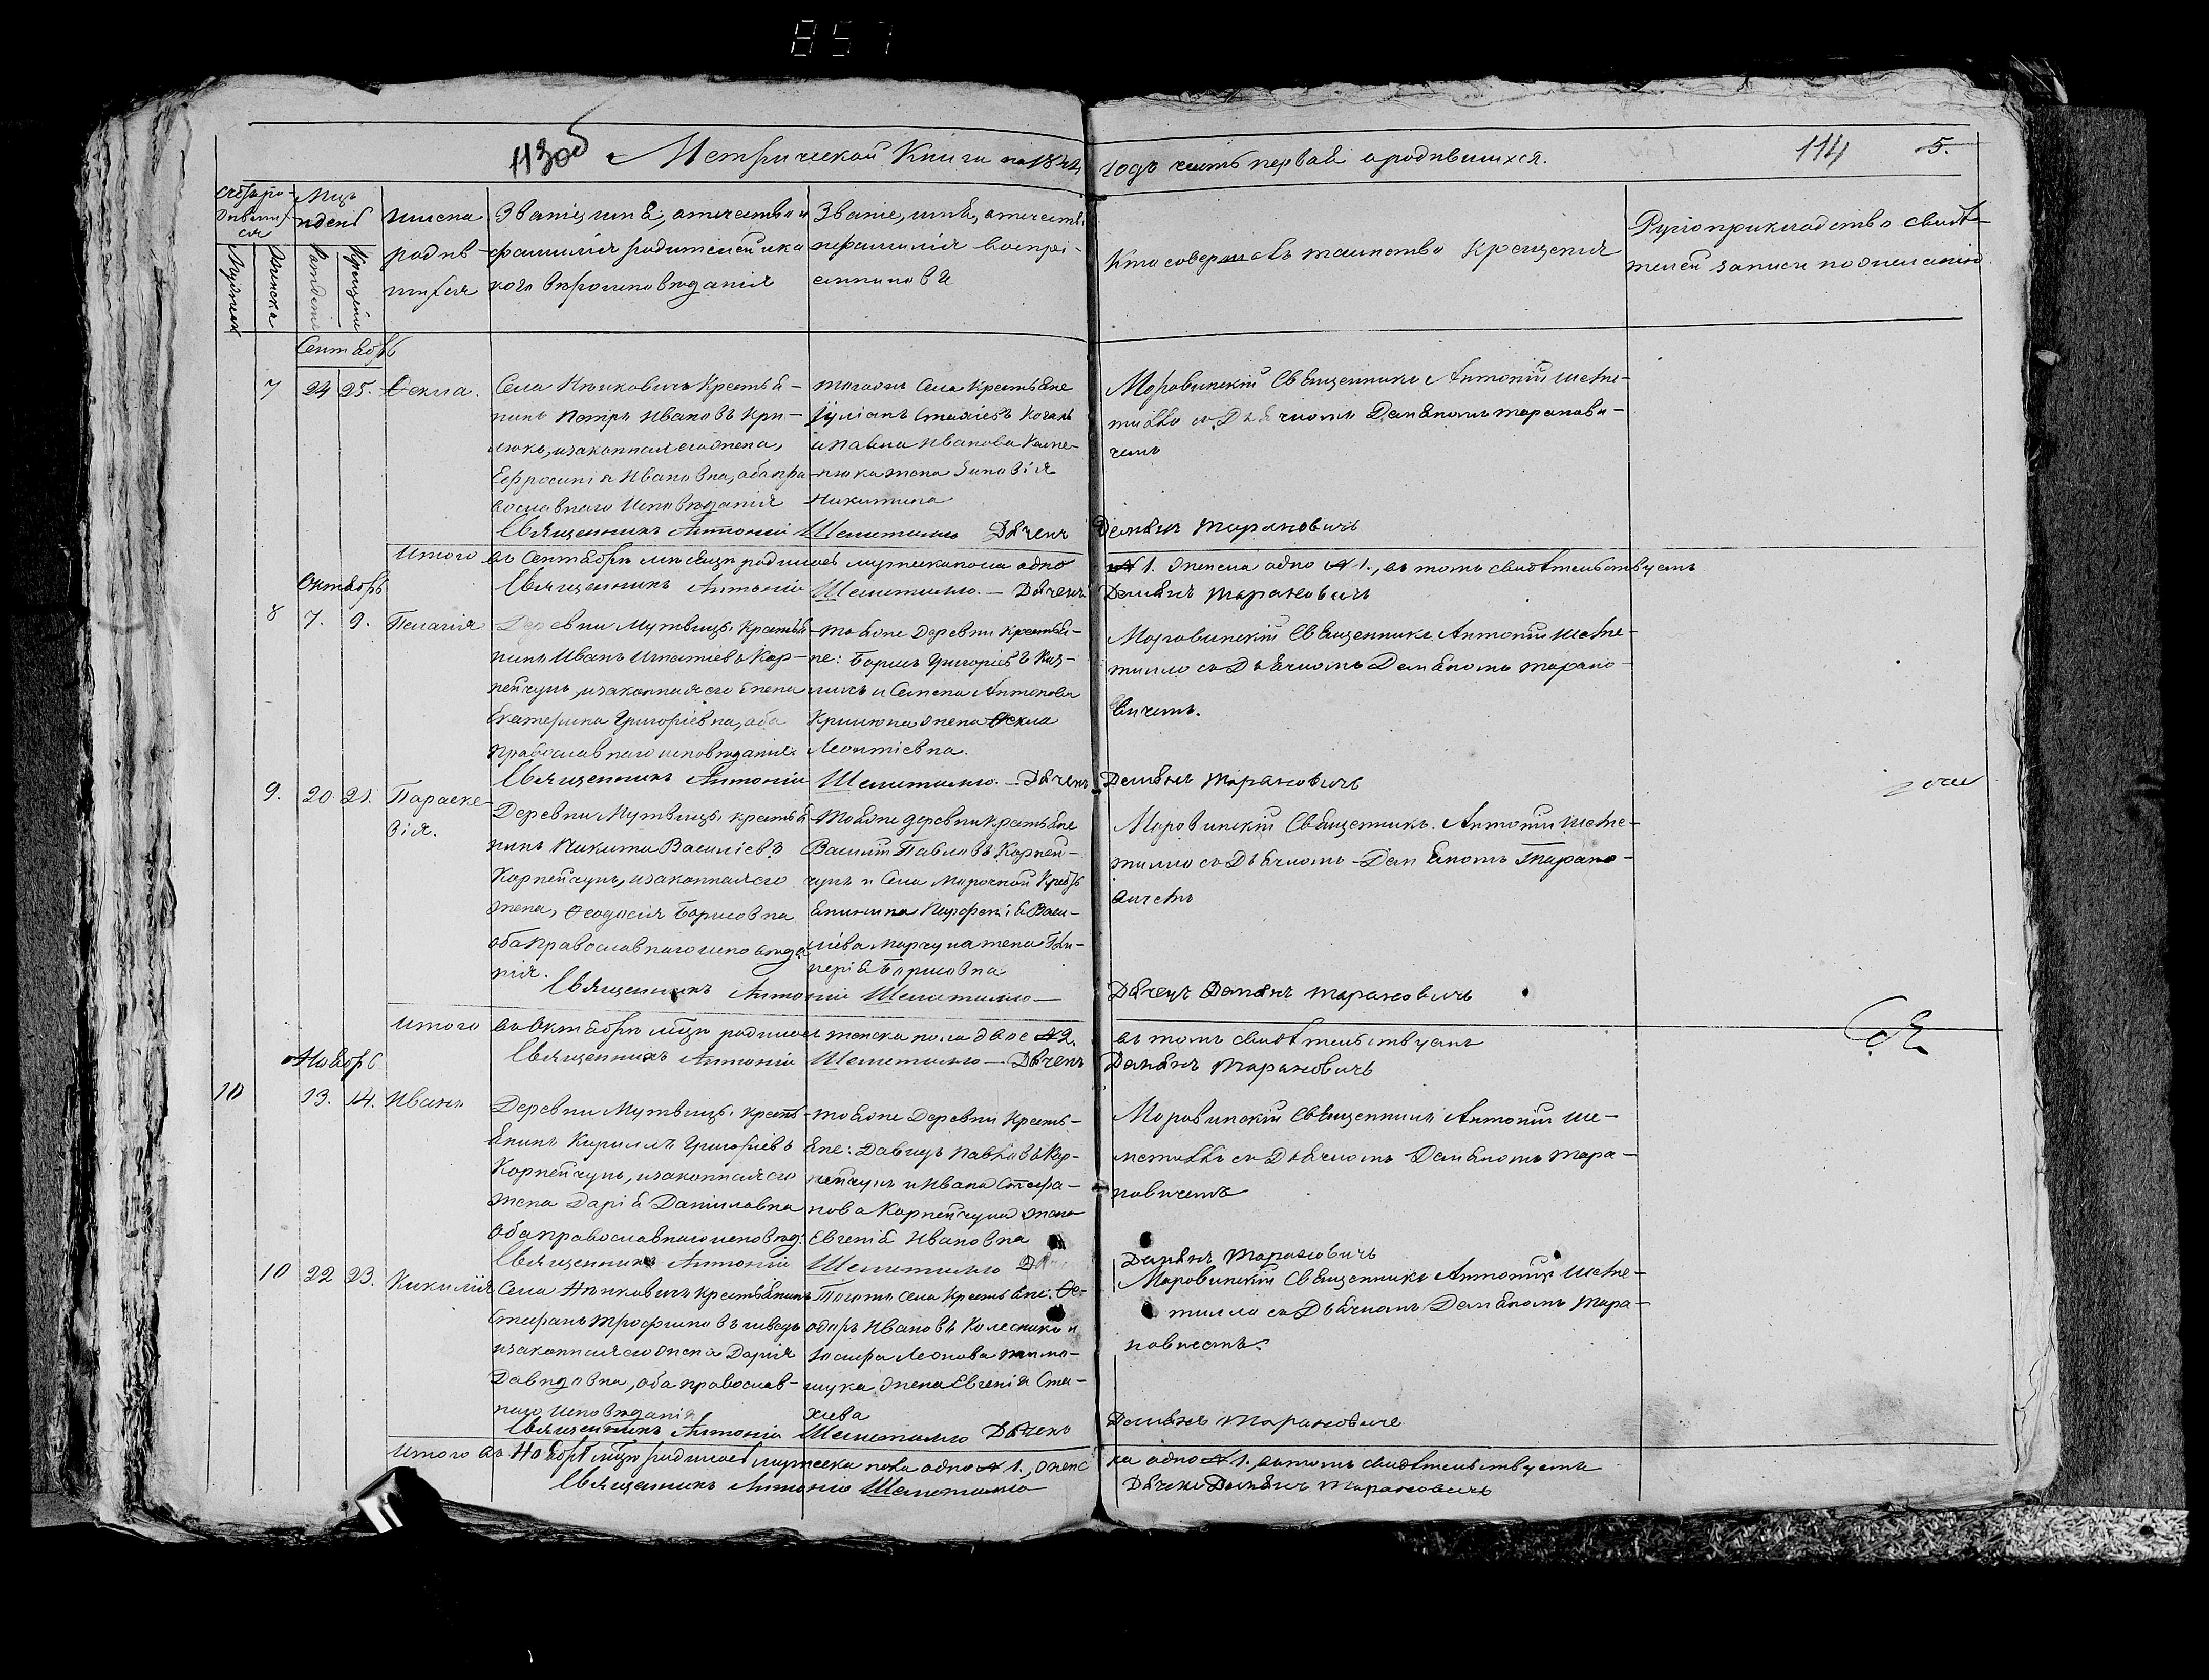 857
113об Метрической Книги на 1844 годъ часть первая о родившихся. 114 5.
Счетъ ро-
дивших-
ся
Мужеска
Женска
Мцъ
и день
Рожденія
Крещенія
Имена
родив-
шихся
Званіе, имя, отчество и
фамилія родителей и ка
кого вѣроисповѣданія
Званіе, имя, отчество
и фамилія воспрі-
емниковъ
Кто совершалъ таинство Крещенія
Рукоприкладство свидѣ-
телей записи по желанію
Сентябрь
7 24 25. Ѳекла.
Села Нѣнковичь Крестья-
нинъ Петръ Ивановъ Кри-
люкъ, и законная его жена,
Ефросинія Ивановна, оба пра
вославнаго Исповѣданія
тогожъ Села Крестьяне
Іуліанъ Стахіевъ
и Павла Иванова
жена Зиновія
Никитина
Моровинскій Священникъ Антоній Шеме-
тилло съ Дьячкомъ Даміаномъ Таранови-
чемъ
Священникъ Антоній Шеметилло Дьячекъ Даміанъ Тарановичъ
Итого въ Сентябрѣ мѣсяцѣ родилось мужеска пола одно № 1. Женска одно № 1., въ томъ свидѣтельствуемъ
Священникъ Антоній Шеметилло. — Дьячекъ Даміанъ Тарановичъ
Октябрь
8 7. 9. Пелагія
Деревни Мутвицы Крестья-
нинъ Иванъ Игнатіевъ Кор-
пейчукъ, и законная его жена
Екатерина Григоріевна, оба
православнаго исповѣданія.
тояже Деревни крестья-
не: Борисъ Григоріевъ
и Семена Антонова
Крилюка жена Ѳекла
Леонтіевна.
Моровинскій Священникъ Антоній Шеме-
тилло съ Дьячкомъ Даміаномъ Тарано-
вичемъ.
Священникъ Антоній Шеметилло. — Дьячекъ Даміанъ Тарановичъ
9. 20 21. Параске-
вія.
Деревни Мутвицы крестья
нинъ Никита Василіевъ
Корпейчукъ, и законная его
жена, Ѳеодосія Борисовна
оба православнаго исповѣда
нія.
Тояже деревни крестьяне
Василій Павловъ Корпей-
чукъ и Села Морочной Кресть
янина Парфенія Васи-
ліева Марчука жена Гли-
керія Борисовна
Моровинскій Священникъ. Антоній Шеме-
тилло съ Дьячкомъ Даміаномъ Тарано-
вичемъ
Священникъ Антоній Шеметилло — Дьячекъ Даміанъ Тарановичъ
Итого въ Октябрѣ мцѣ родилось женска пола двое № 2. въ томъ свидѣтельствуемъ
Священникъ Антоній Шеметилло — Дьячекъ Даміанъ Тарановичъ
Ноябрь
10 13. 14. Иванъ
Деревни Мутвицы. Кресть-
янинъ Кириллъ Григоріевъ
Корпейчукъ, и законная его
жена Дарія Даниловна
оба православнаго исповѣд:
тояже Деревни Кресть-
яне: Давидъ Павловъ Кор-
пейчукъ и Ивана Стефа-
нова Корпейчука жена
Евгенія Ивановна
Моровинскій Священникъ Антоній Ше-
метилло съ Дьячкомъ Даміаномъ Тара-
новичемъ
Священникъ Антоній Шеметилло Даміанъ Тарановичъ
10 22 23. Кикилія
Села Нѣнковичь крестьянинъ
Стефанъ Трофимовъ Швецъ
и законная его жена Дарія
Давидовна, оба православ-
наго исповѣданія
Тогожъ Села Крестьяне: Ѳе-
одоръ Ивановъ Колесникъ и
Іосифа Леонова Тимо-
шука жена Евгенія Ста-
хіева
Моровинскій Священникъ Антоній Шеме-
тилло съ Дьячкомъ Даміаномъ Тара-
новичемъ.
Священникъ Антоній Шеметилло Дьячекъ Даміанъ Тарановичъ
Итого въ Ноябрѣ мцѣ родилось мужеска пола одно № 1., женс ка одно № 1. въ томъ свидѣтельствуемъ
Священникъ Антоній Шеметилло Дьячекъ Даміанъ Тарановичъ